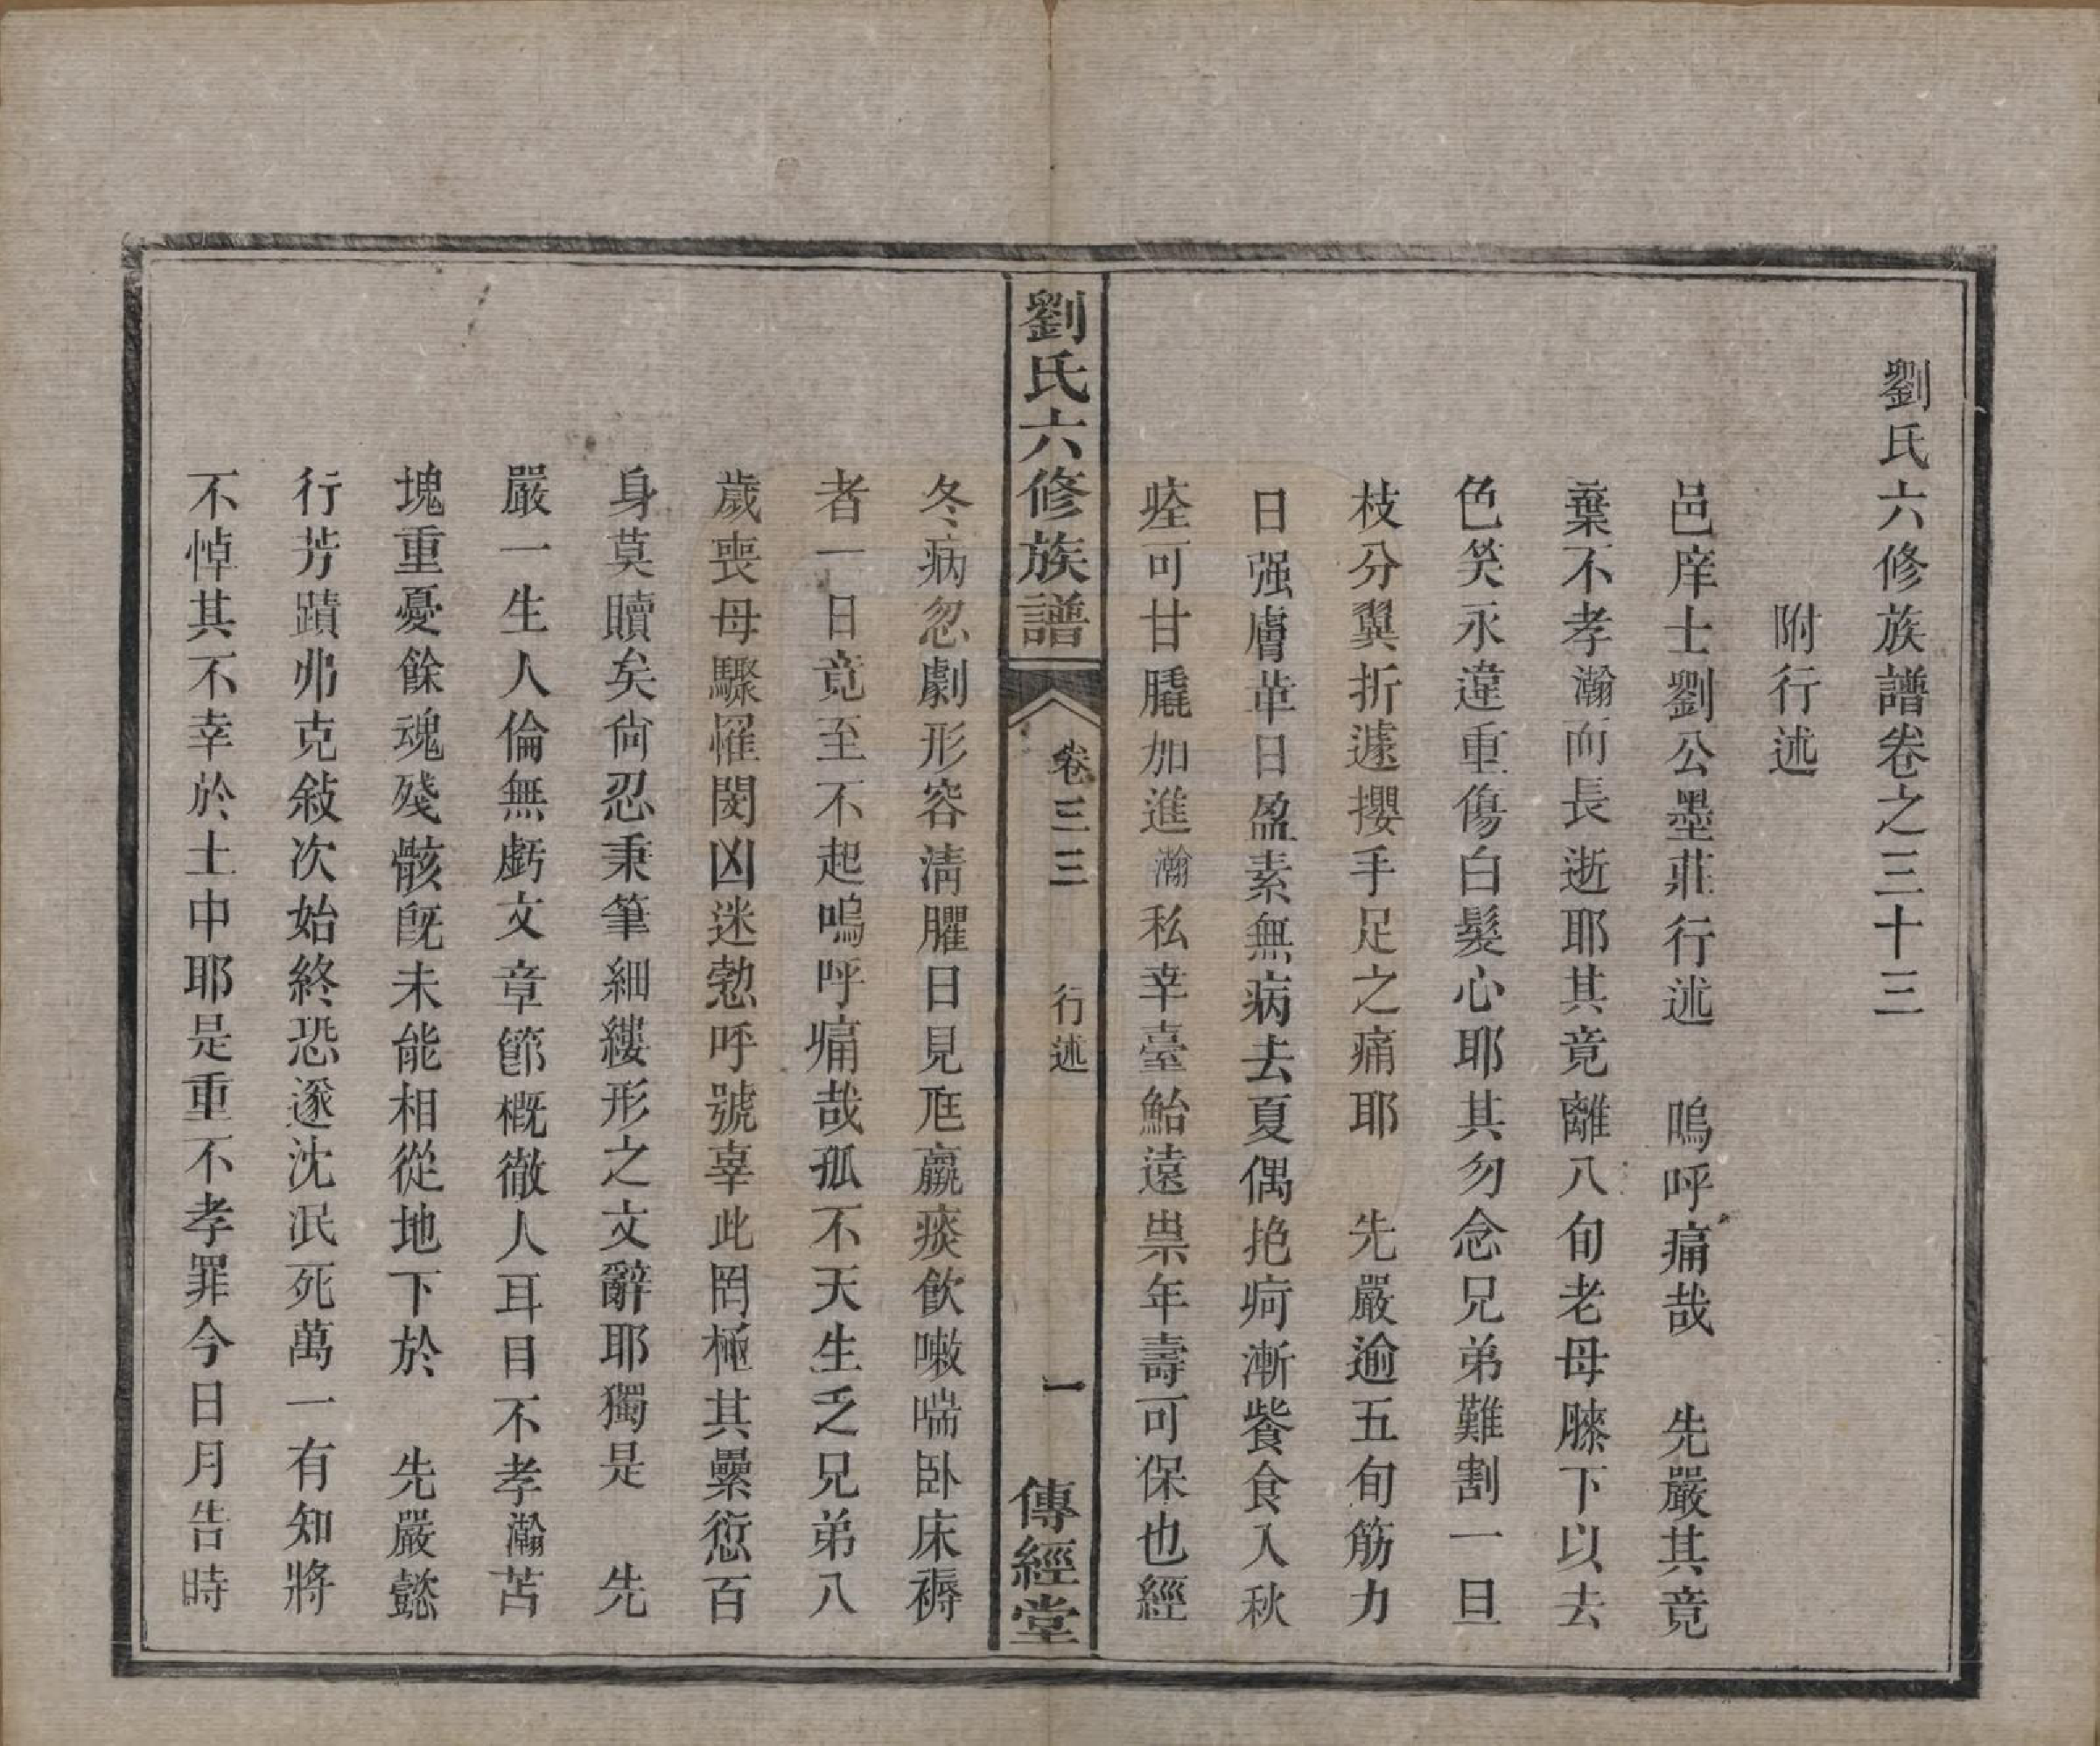 劉氏六修族譜卷之三十三
附行述
邑庠士劉公墨莊行述　嗚呼痛哉　先嚴其竟
棄不孝瀚而長逝耶其竟離八旬老母膝下以去
色笑永違重傷白髮心耶其勿念兄弟難割一旦
枝分翼折遽攖手足之痛耶　先嚴逾五旬筋力
日强膚革日盈素無病去夏偶抱疴漸餐食入秋
痊可甘膬加進瀚私幸臺鮐遠祟年壽可保也經
劉氏六修族譜　卷三三　行述　一　傳經堂
冬病忽劇形容淸臞日見尫羸痰飲嗽喘臥床褥
者一日竟至不起嗚呼痛哉孤不天生乏兄弟八
歲喪母驟罹閔凶迷懃呼號辜此罔極其纍愆百
身莫贖矣尙忍秉筆細縷形之文辭耶獨是　先
嚴一生人倫無虧文章節槪徹人耳目不孝瀚苫
塊重憂餘魂殘骸旣未能相從地下於　先嚴懿
行芳蹟弗克敍次始終恐遂沈泯死萬一有知將
不悼其不幸於土中耶是重不孝罪今日月告時